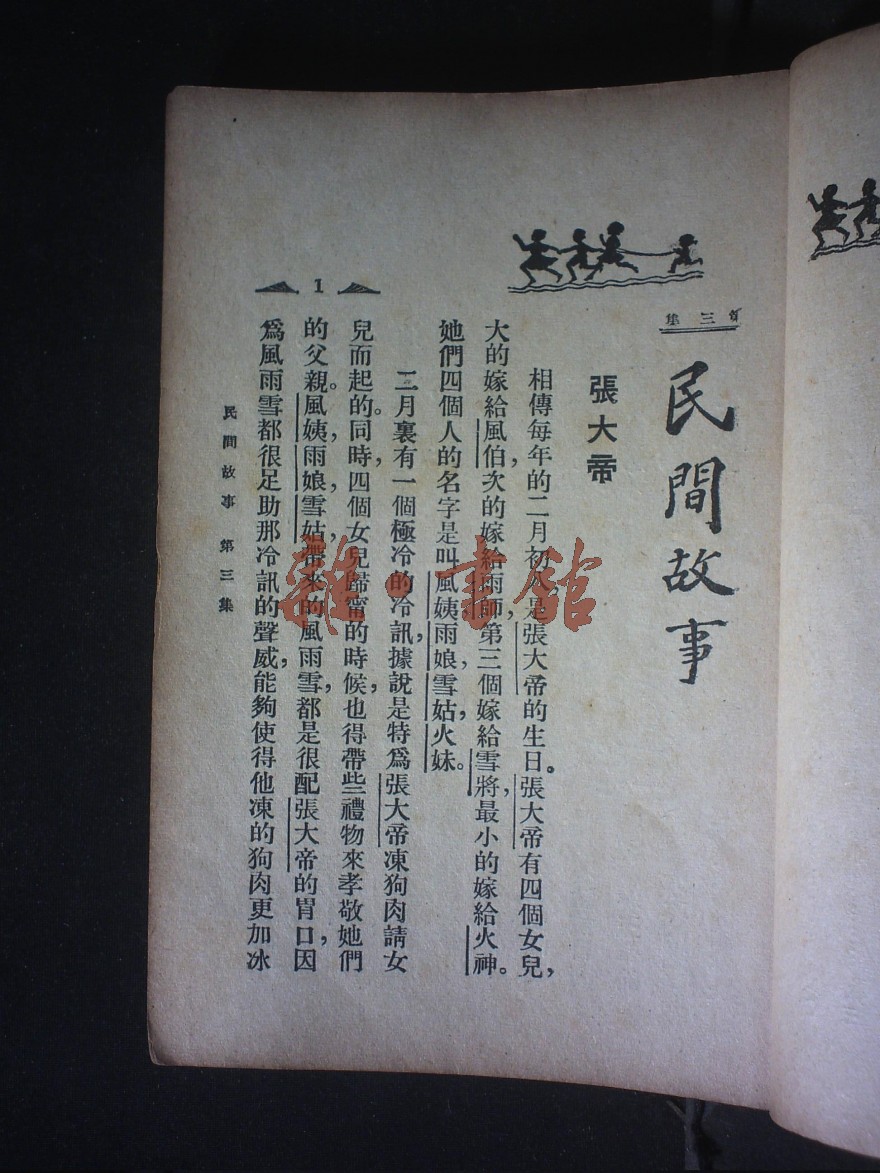 第三集
民間故事
張大帝
相傳每年的二月初八，是張大帝的生日。張大帝有四個女兒，
大的嫁給風伯，次的嫁給雨師，第三個嫁給雪將，最小的嫁給火神。
她們四個人的名字是叫風姨，雨娘，雪姑，火妹。
二月裏有一個極冷的冷訊，據說是特爲張大帝凍狗肉請女
兒而起的。同時，四個女兒歸甯的時候，也得帶些禮物來孝敬她們
的父親。風姨，雨娘，雪姑，帶來的風雨雪，都是很配張大帝的胃口，因
爲風雨雪都很足助那冷訊的聲威，能夠使得他凍的狗肉更加冰
民間故事 第三集
1
雜·書館